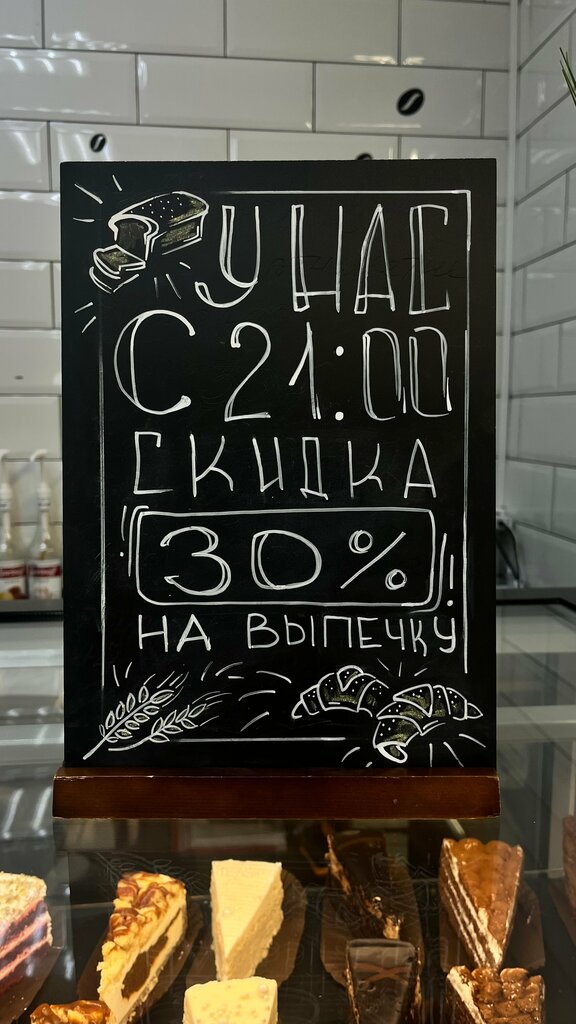 У НАС
С 21:00
СКИДКА
30%
НА ВЫПЕЧКУ